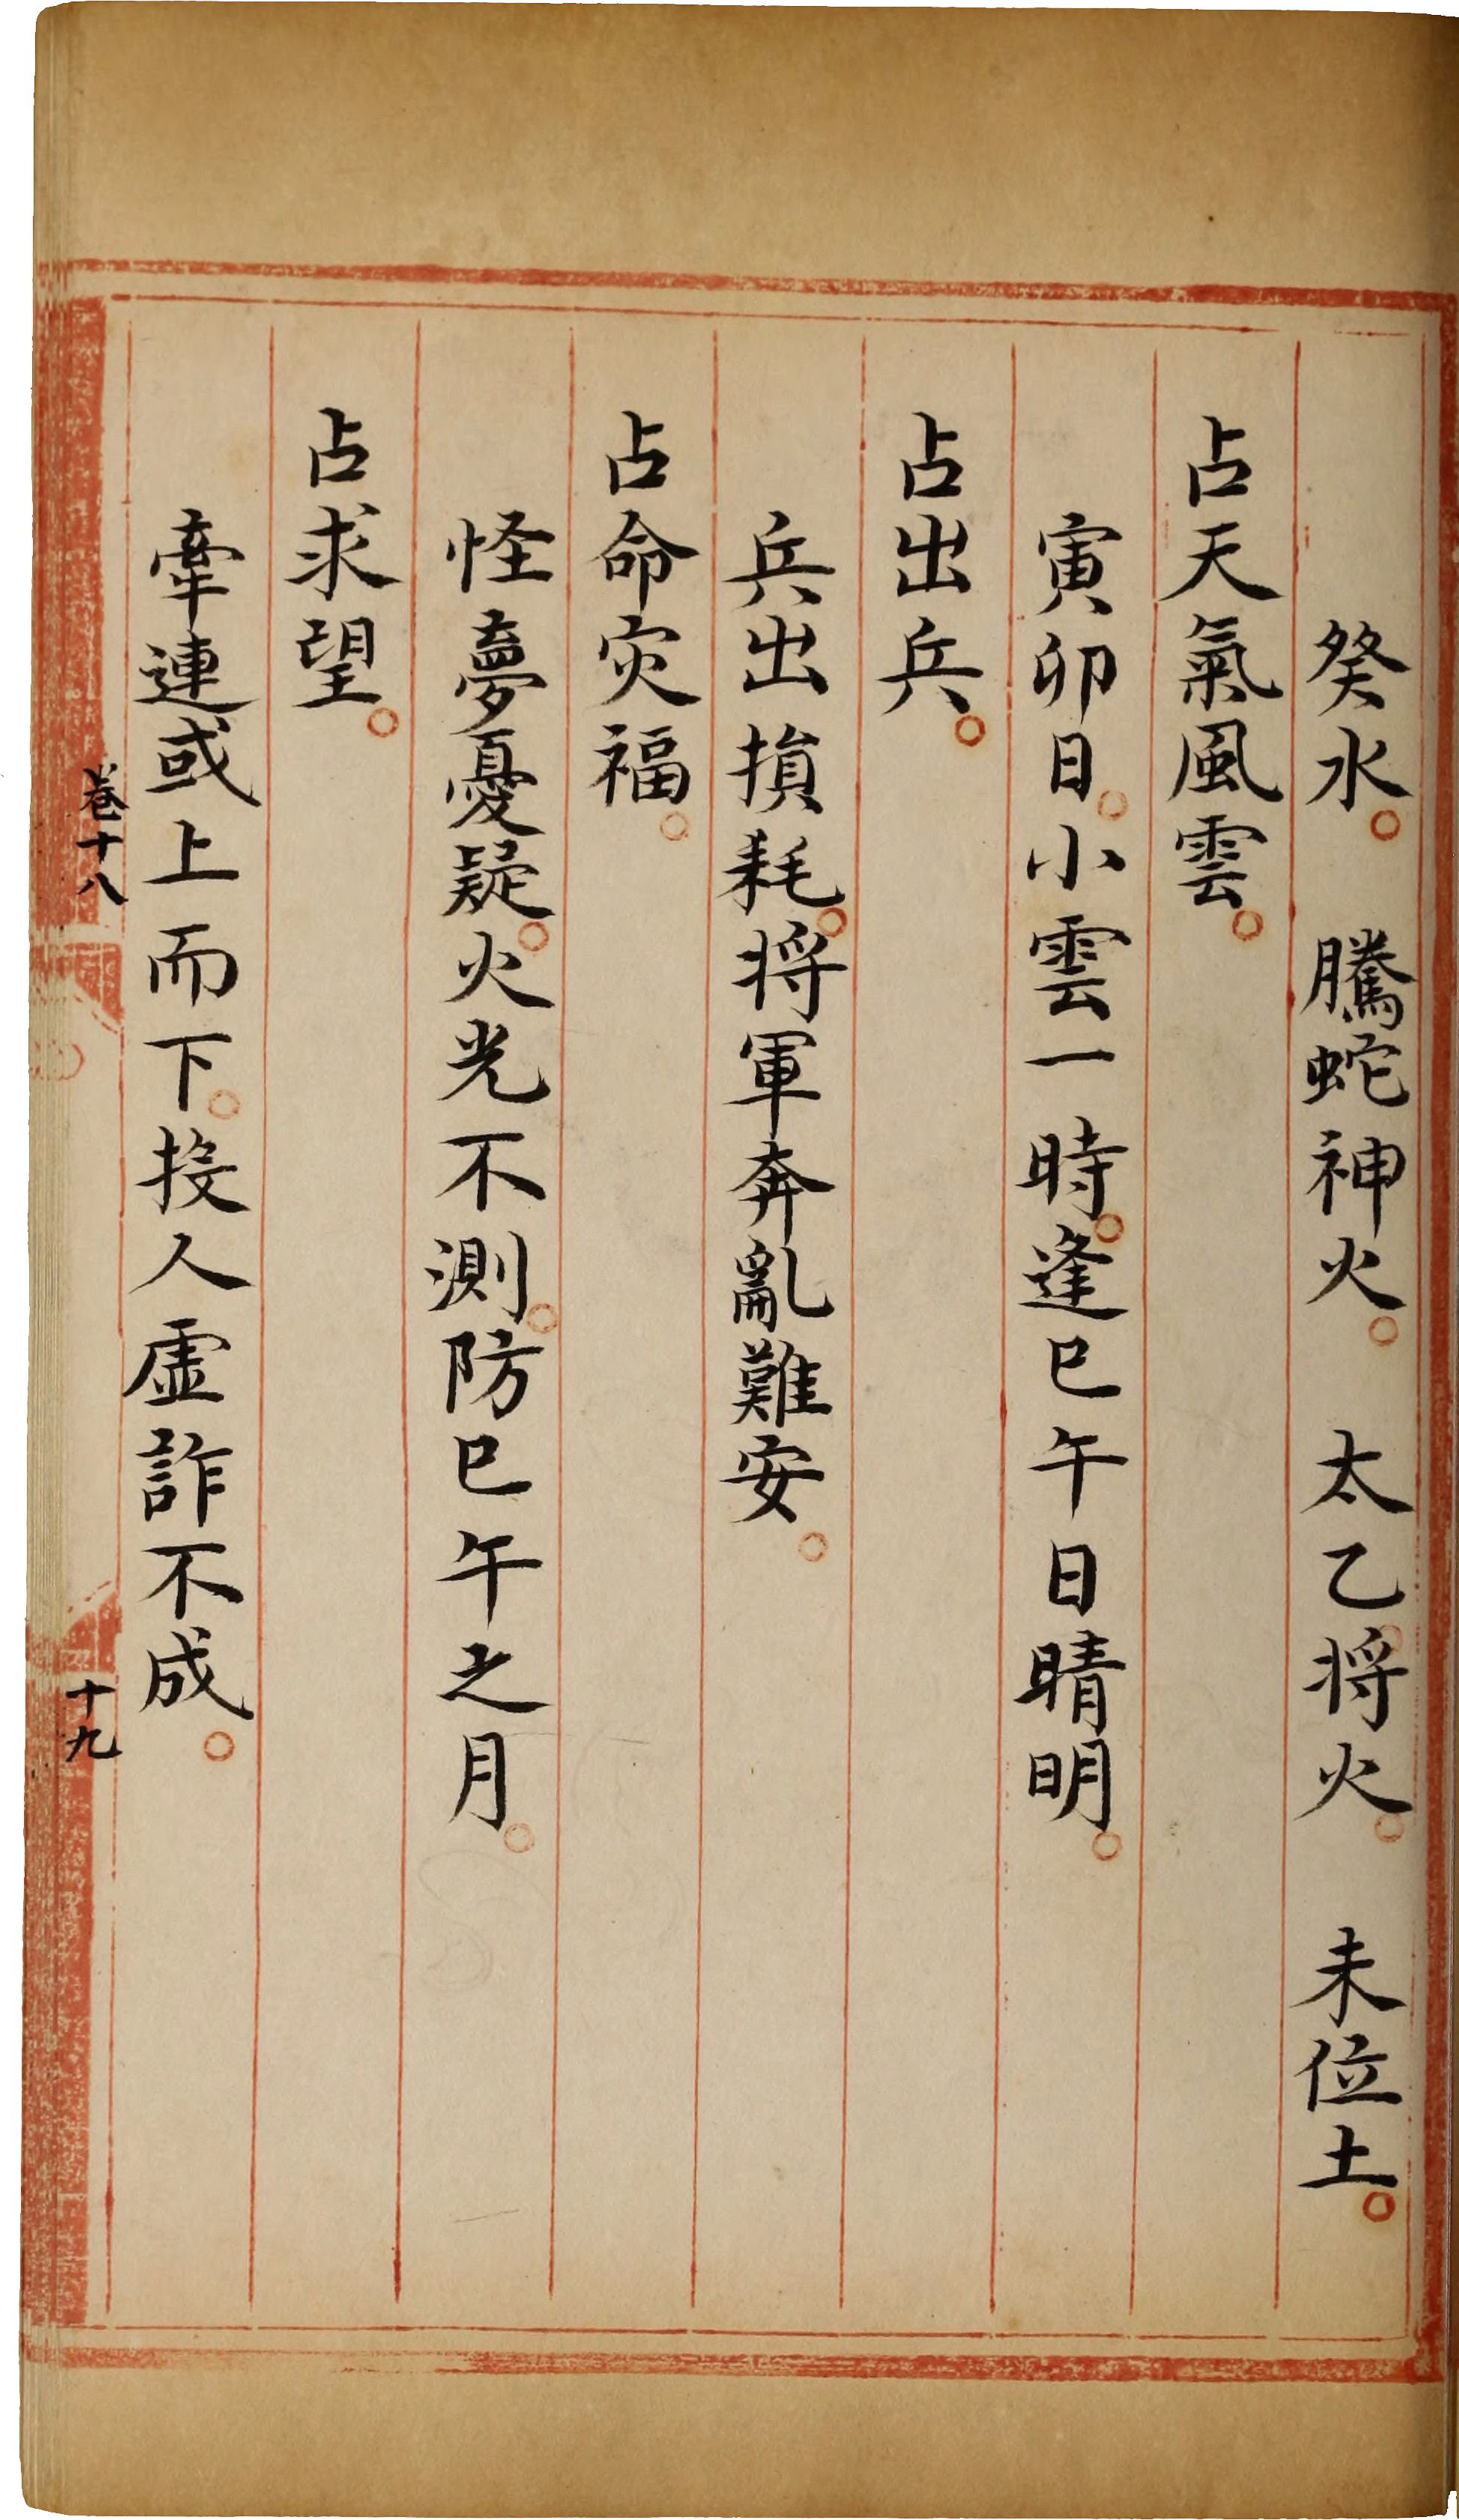 癸水。　騰蛇神火。　太乙将火。　未位土。
占天氣風雲。
寅卯日。小雲一時。逢巳午日晴明。
占出兵。
兵出損耗。将軍奔亂難安。
占命灾福。
怪夢憂疑。火光不測。防巳午之月。
占求望。
牽連或上而下。投人虛詐不成。
卷十八
十九